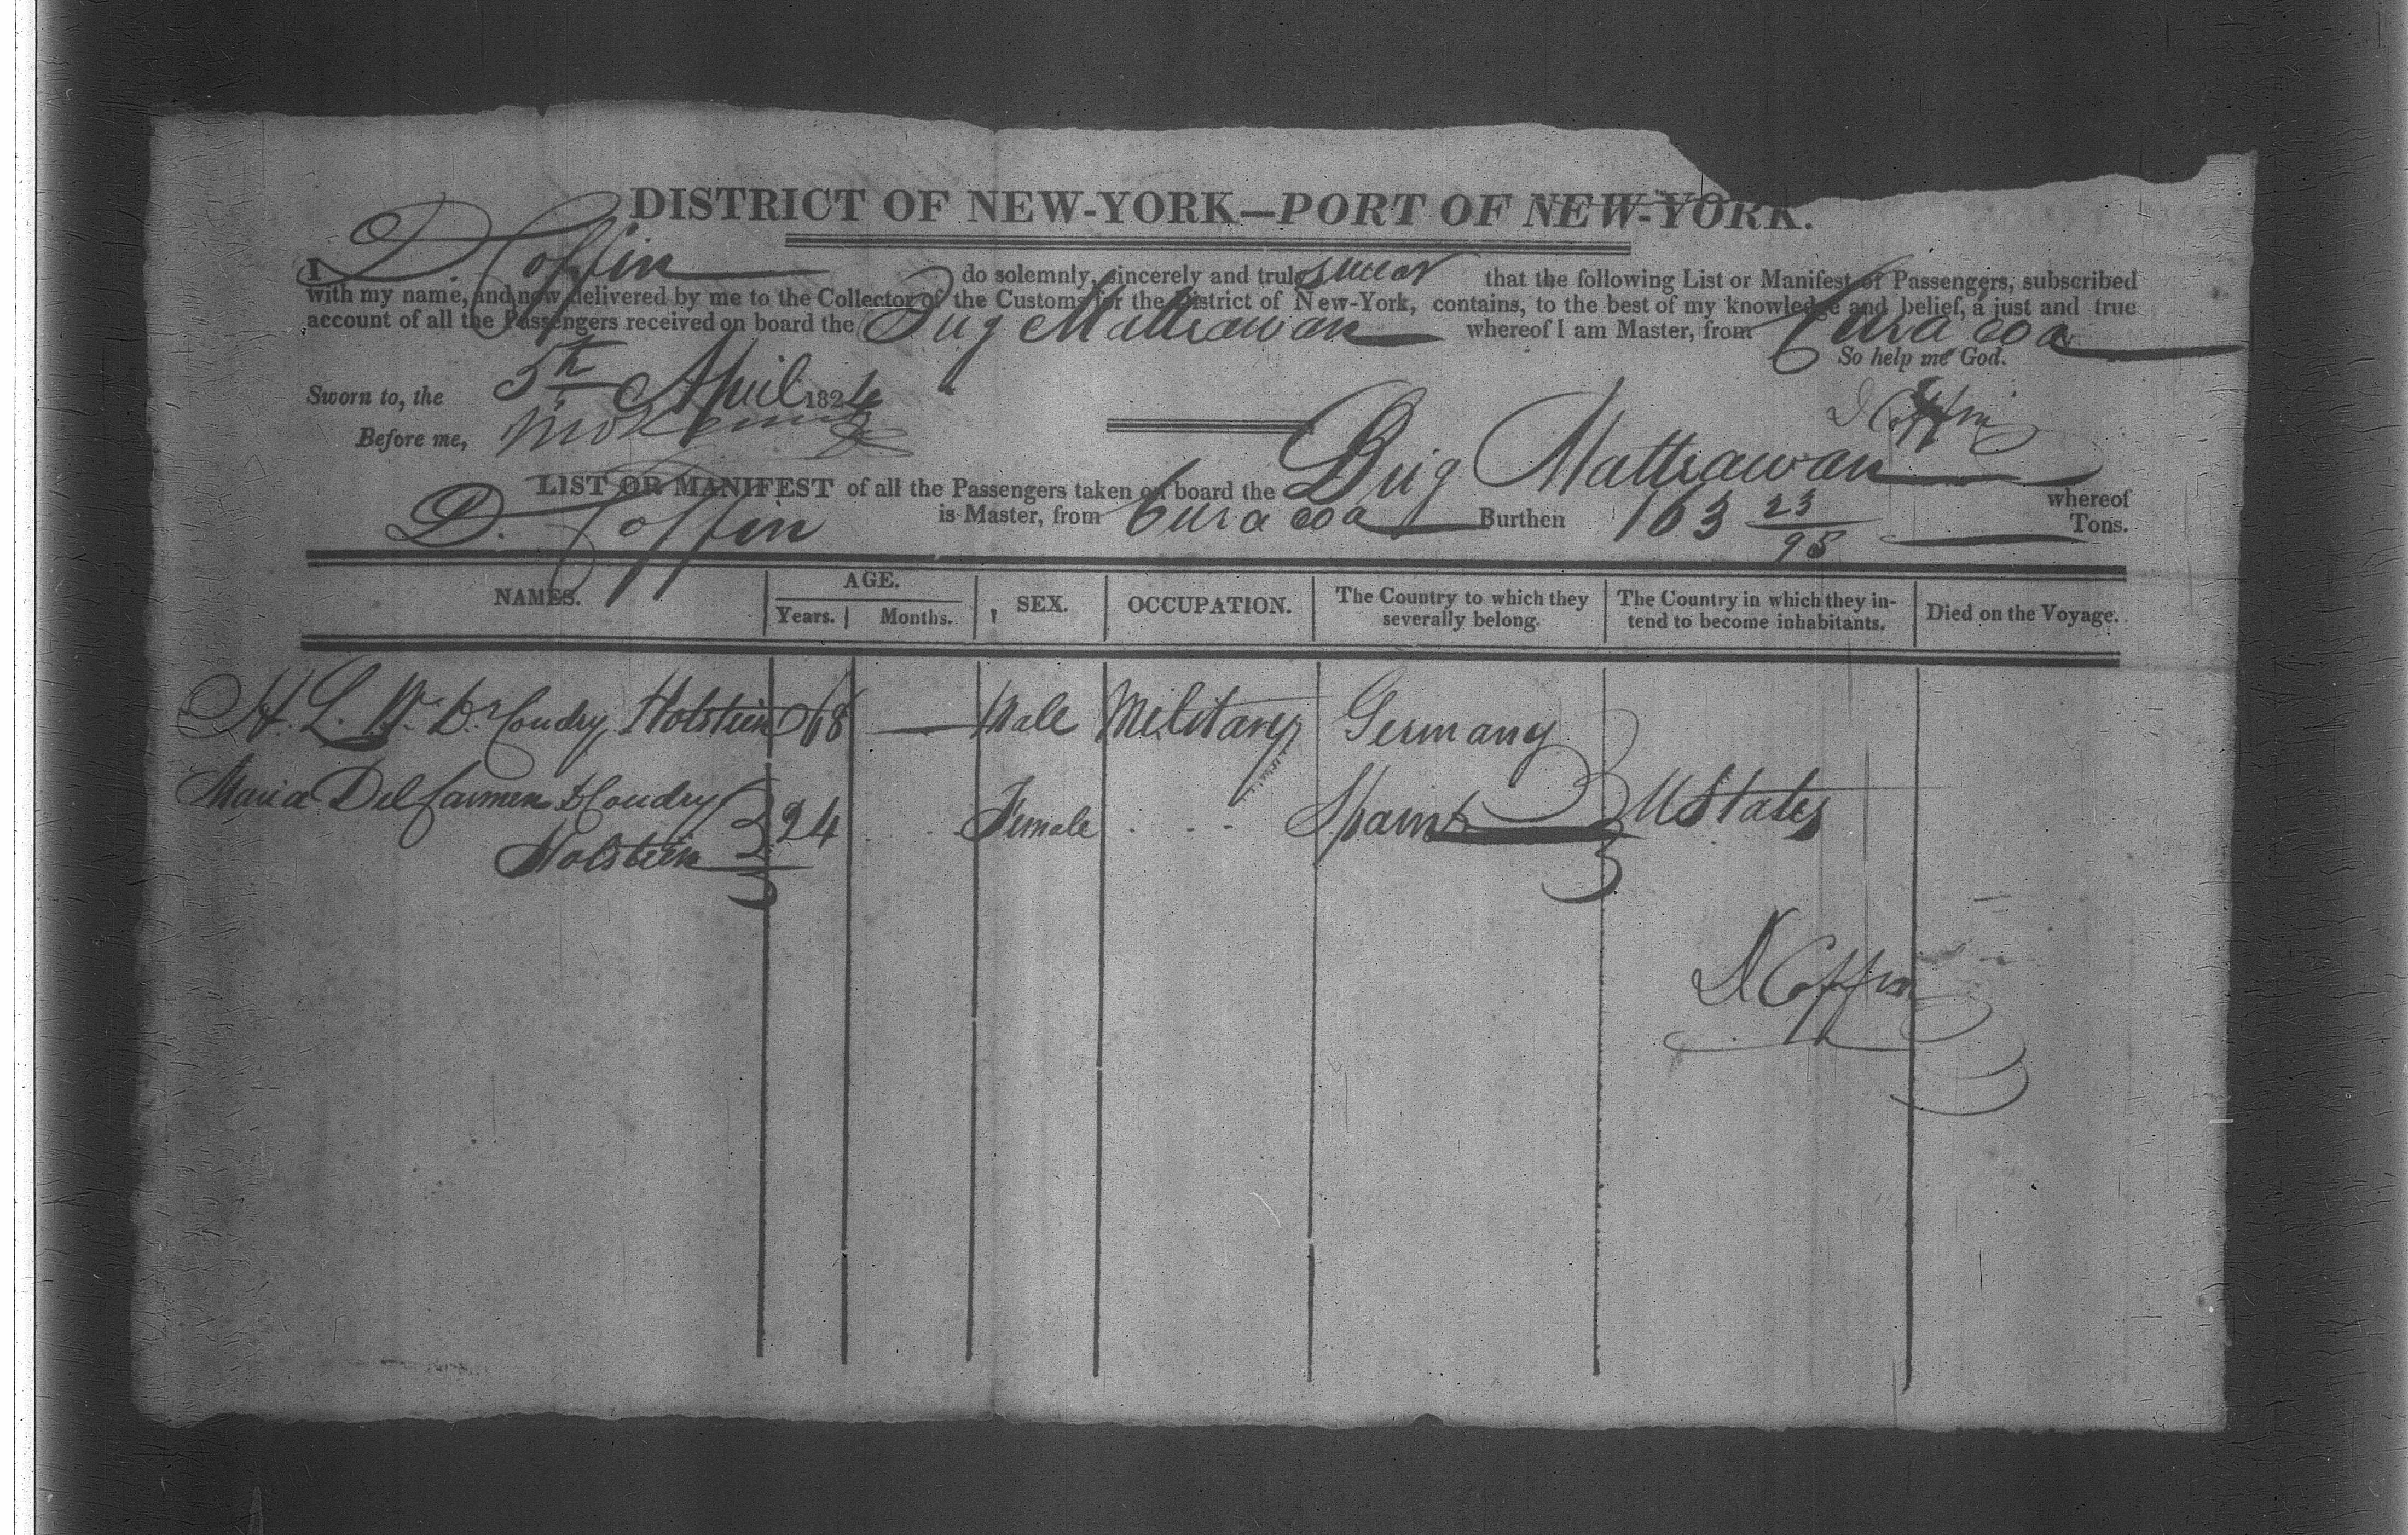 DISTRICT OF NEW-YORK—PORT OF NEW-YORK.
I D. Coffin do solemnly, sincerely and truly swear that the following List or Manifest of Passengers, subscribed
with my name, and now delivered by me to the Collector of the Customs for the District of New-York, contains, to the best of my knowledge and belief, a just and true
account of all the Passengers received on board the Brig Matteawan whereof I am Master, from Curacoa
So help me God.
Sworn to, the 5th April 1824 D Coffin
Before me,
LIST OR MANIFEST of all the Passengers taken on board the Brig Matteawan whereof
D. Coffin is Master, from Curacoa Burthen 163 23/95 Tons.
NAMES. AGE. SEX. OCCUPATION. The Country to which they severally belong. The Country in which they intend to become inhabitants. Died on the Voyage.
Years. Months.
H. L. Coudry Holstein 68 — Male Military Germany
Maria Del Carmen Coudry 24 Female Spain U States
Holstein
D Coffin